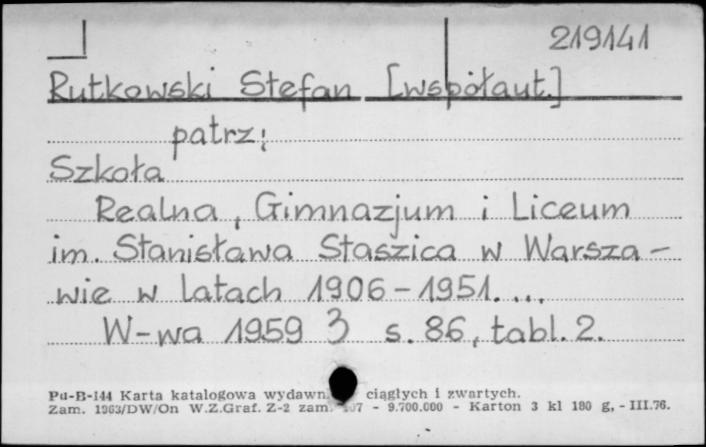 219141
Rutkowski Stefan [współaut.]
patrz:
Szkoła
Realna, Gimnazjum i Liceum
im. Stanisława Staszica w Warsza-
wie w latach 1906-1951. ...
W-wa 1959 3 s. 86, tabl. 2.
Pu-B-144 Karta katalogowa wydawn. ciągłych i zwartych.
Zam. 1963/DW/On W.Z.Graf. Z-2 zam. 07 - 9.700.000 - Karton 3 kl 180 g, - III.76.